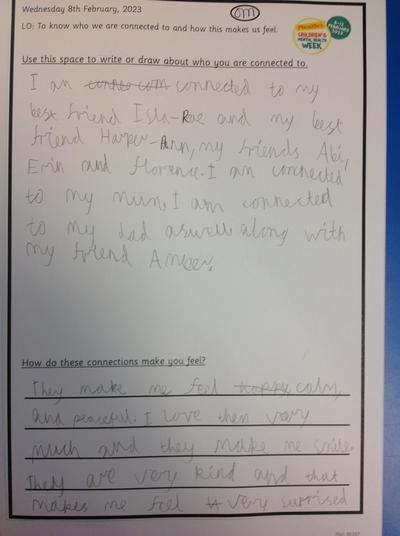 Wednesday 8th February, 2023
om
LO: To know who we are connected to and how this makes us feel.
Place2Be's
CHILDREN'S
MENTAL HEALTH
WEEK
6-12
FEBRUARY
2023
Use this space to write or draw about who you are connected to.
I am connected to my
best friend Isla-Rae and my best
friend Harper-Ann, my friends Abi,
Erin and florence. I am connected
to my mum, I am connected
to my dad aswell along with
my friend Amber.
How do these connections make you feel?
They make me feel happy calm,
and peaceful. I love them very
much and they make me smile.
They are very kind and that
makes me feel very surrised